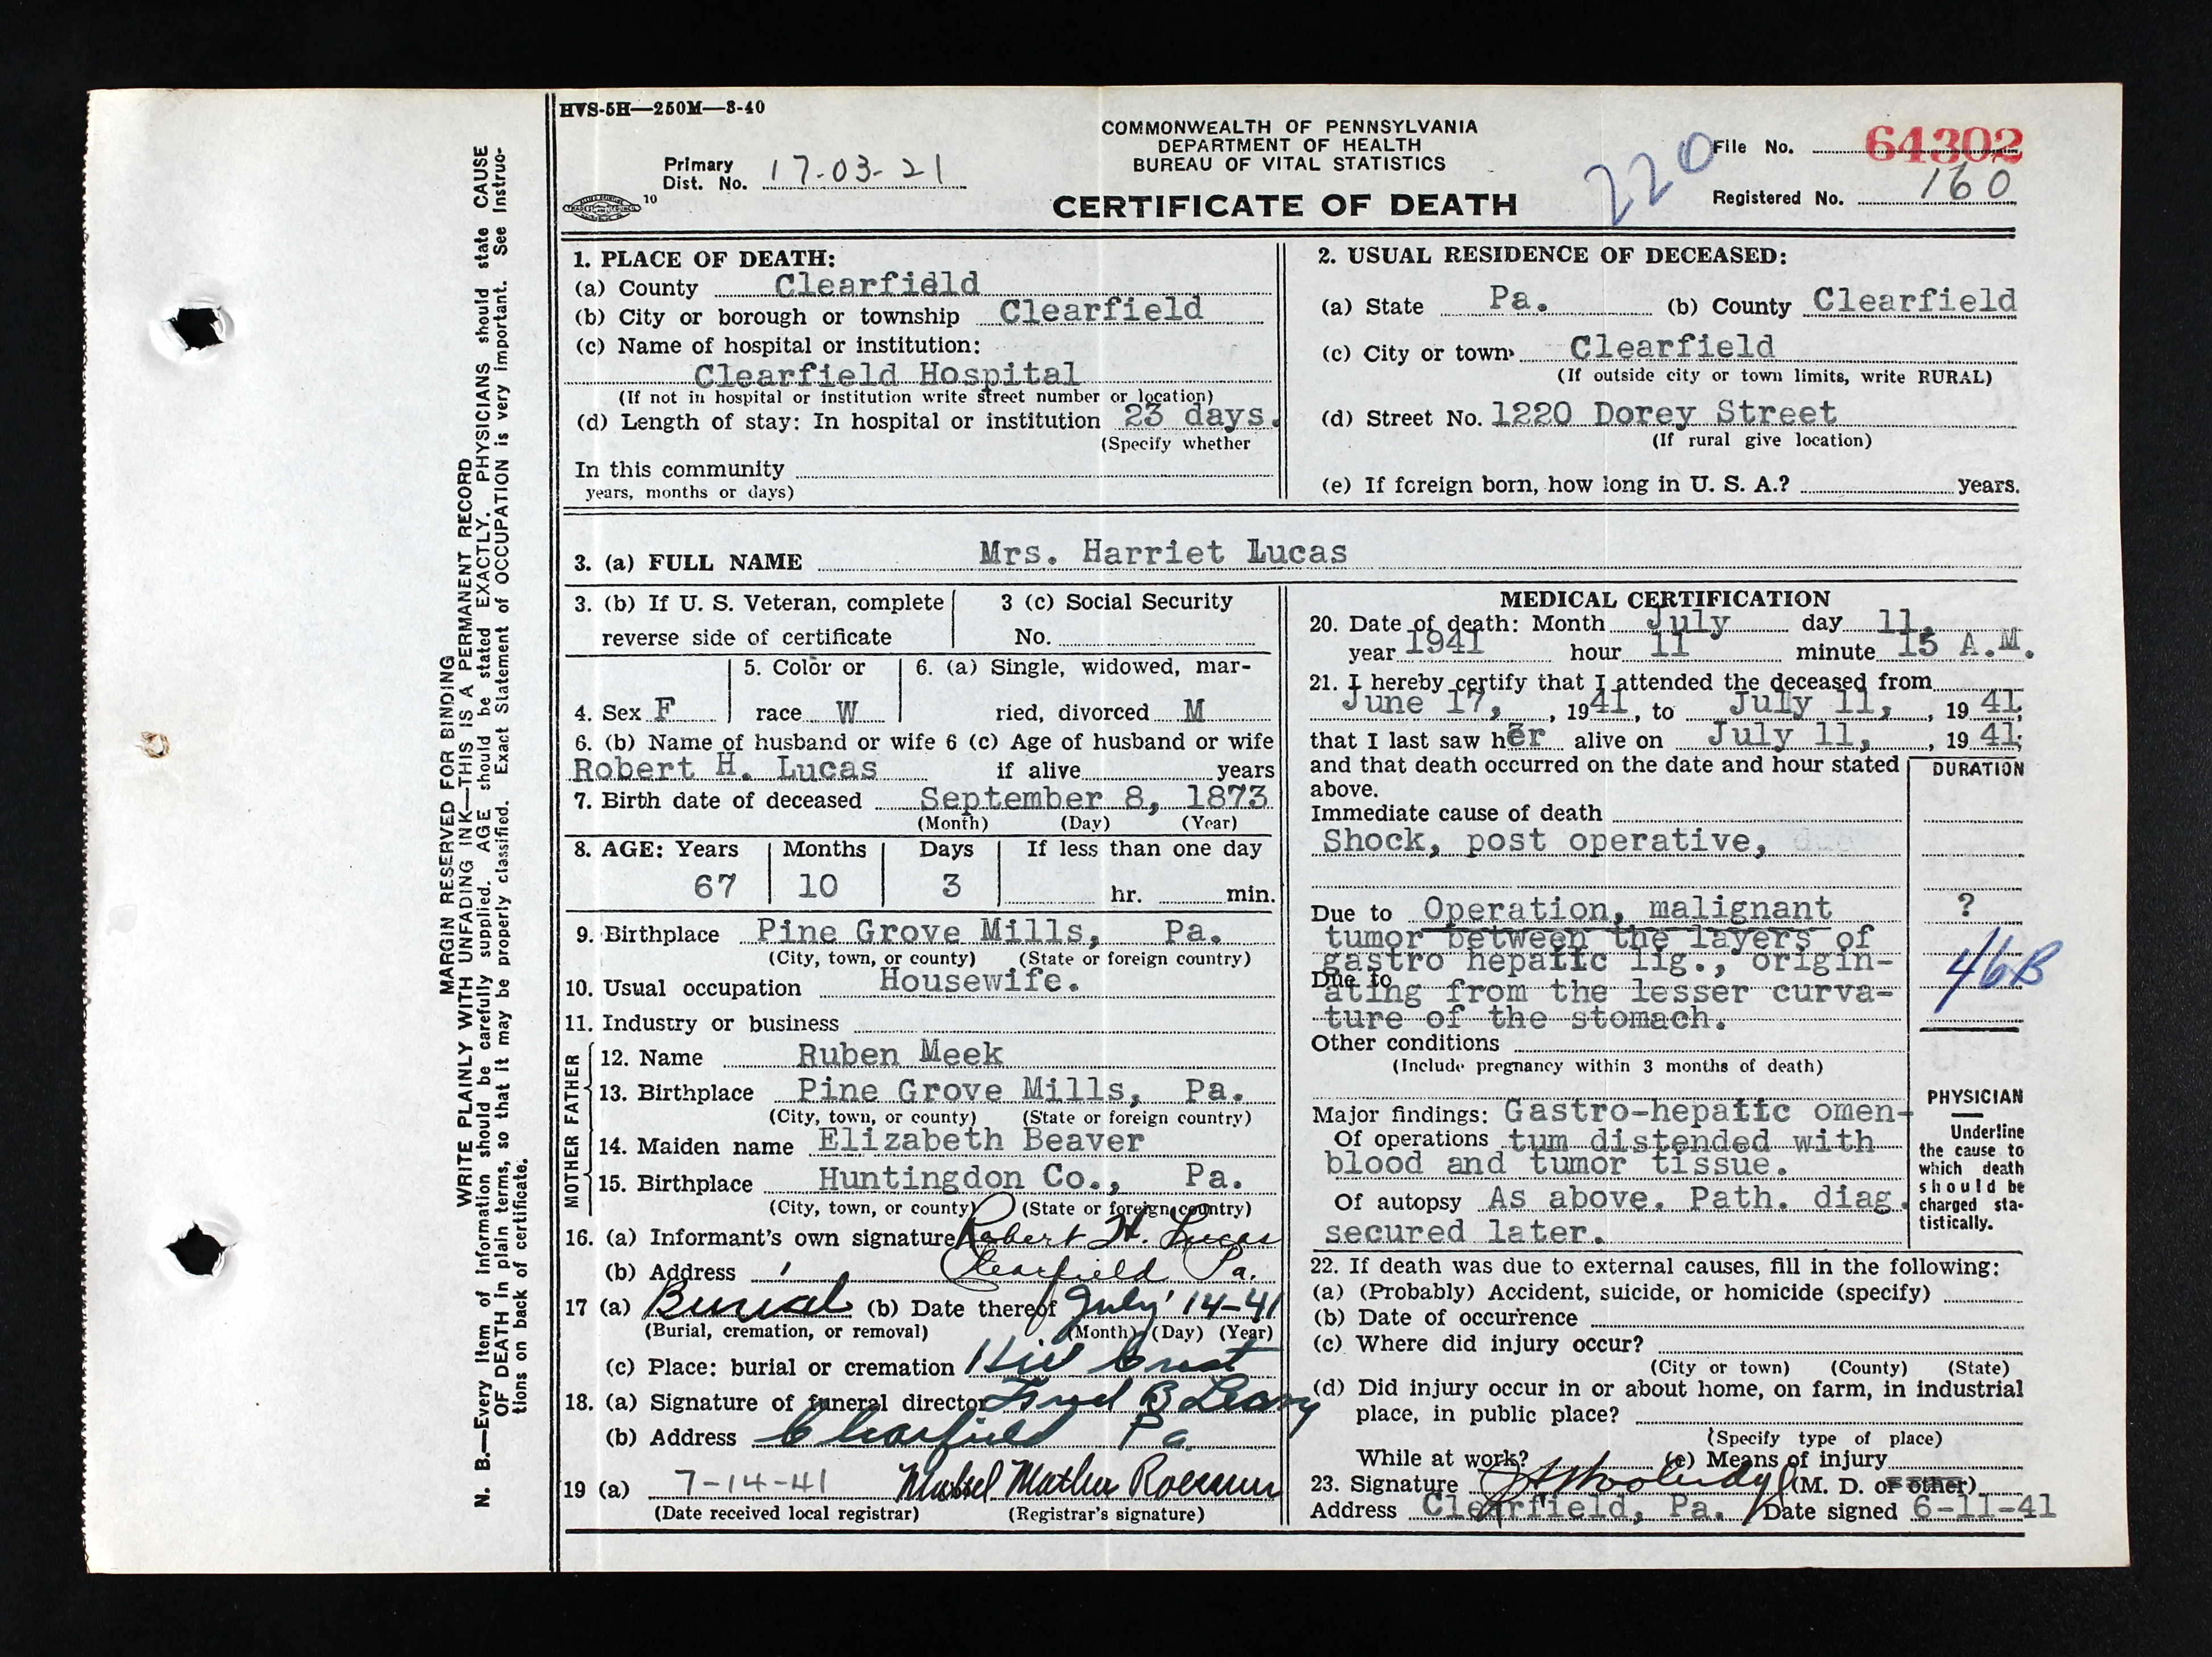 HVS-5H—250M—3-40
COMMONWEALTH OF PENNSYLVANIA
DEPARTMENT OF HEALTH
BUREAU OF VITAL STATISTICS
CERTIFICATE OF DEATH
Primary
Dist. No. 17-03-21
10
220
File No. 64302
Registered No. 160
MARGIN RESERVED FOR BINDING
WRITE PLAINLY WITH UNFADING INK—THIS IS A PERMANENT RECORD
N. B.—Every item of information should be carefully supplied. AGE should be stated EXACTLY. PHYSICIANS should state CAUSE
OF DEATH in plain terms, so that it may be properly classified. Exact Statement of OCCUPATION is very important. See Instruc-
tions on back of certificate.
1. PLACE OF DEATH:
(a) County Clearfield
(b) City or borough or township Clearfield
(c) Name of hospital or institution:
Clearfield Hospital
(If not in hospital or institution write street number or location)
(d) Length of stay: In hospital or institution 23 days.
(Specify whether
In this community
years, months or days)
2. USUAL RESIDENCE OF DECEASED:
(a) State Pa. (b) County Clearfield
(c) City or town Clearfield
(If outside city or town limits, write RURAL)
(d) Street No. 1220 Dorey Street
(If rural give location)
(e) If foreign born, how long in U. S. A.? years.
3. (a) FULL NAME Mrs. Harriet Lucas
3. (b) If U. S. Veteran, complete
reverse side of certificate
3 (c) Social Security
No.
4. Sex F
5. Color or
race W
6. (a) Single, widowed, mar-
ried, divorced M
6. (b) Name of husband or wife 6 (c) Age of husband or wife
Robert H. Lucas if alive years
7. Birth date of deceased September 8, 1873
(Month) (Day) (Year)
8. AGE: Years Months Days If less than one day
67 10 3 hr. min.
9. Birthplace Pine Grove Mills, Pa.
(City, town, or county) (State or foreign country)
10. Usual occupation Housewife.
11. Industry or business
FATHER
12. Name Ruben Meek
13. Birthplace Pine Grove Mills, Pa.
(City, town, or county) (State or foreign country)
MOTHER
14. Maiden name Elizabeth Beaver
15. Birthplace Huntingdon Co., Pa.
(City, town, or county) (State or foreign country)
16. (a) Informant's own signature Robert H. Lucas
(b) Address Clearfield Pa.
17 (a) Burial (b) Date thereof July 14-41
(Burial, cremation, or removal) (Month) (Day) (Year)
(c) Place: burial or cremation Hill Crest
18. (a) Signature of funeral director Fred B Leavy
(b) Address Clearfield Pa.
19 (a) 7-14-41 Mabel Mather
(Date received local registrar) (Registrar's signature)
MEDICAL CERTIFICATION
20. Date of death: Month July day 11,
year 1941 hour 11 minute 15 A.M.
21. I hereby certify that I attended the deceased from
June 17, , 1941, to July 11, , 19 41;
that I last saw her alive on July 11, , 19 41;
and that death occurred on the date and hour stated
above.
DURATION
Immediate cause of death
Shock, post operative, due
Due to Operation, malignant ?
tumor between the layers of
gastro hepatic lig., origin-
Due to
ating from the lesser curva-
ture of the stomach.
46B
Other conditions
(Include pregnancy within 3 months of death)
Major findings: Gastro-hepatic omen-
Of operations tum distended with
blood and tumor tissue.
Of autopsy As above. Path. diag.
secured later.
PHYSICIAN
Underline
the cause to
which death
should be
charged sta-
tistically.
22. If death was due to external causes, fill in the following:
(a) (Probably) Accident, suicide, or homicide (specify)
(b) Date of occurrence
(c) Where did injury occur?
(City or town) (County) (State)
(d) Did injury occur in or about home, on farm, in industrial
place, in public place?
(Specify type of place)
While at work? (e) Means of injury
23. Signature (M. D. or other)
Address Clearfield, Pa. Date signed 6-11-41